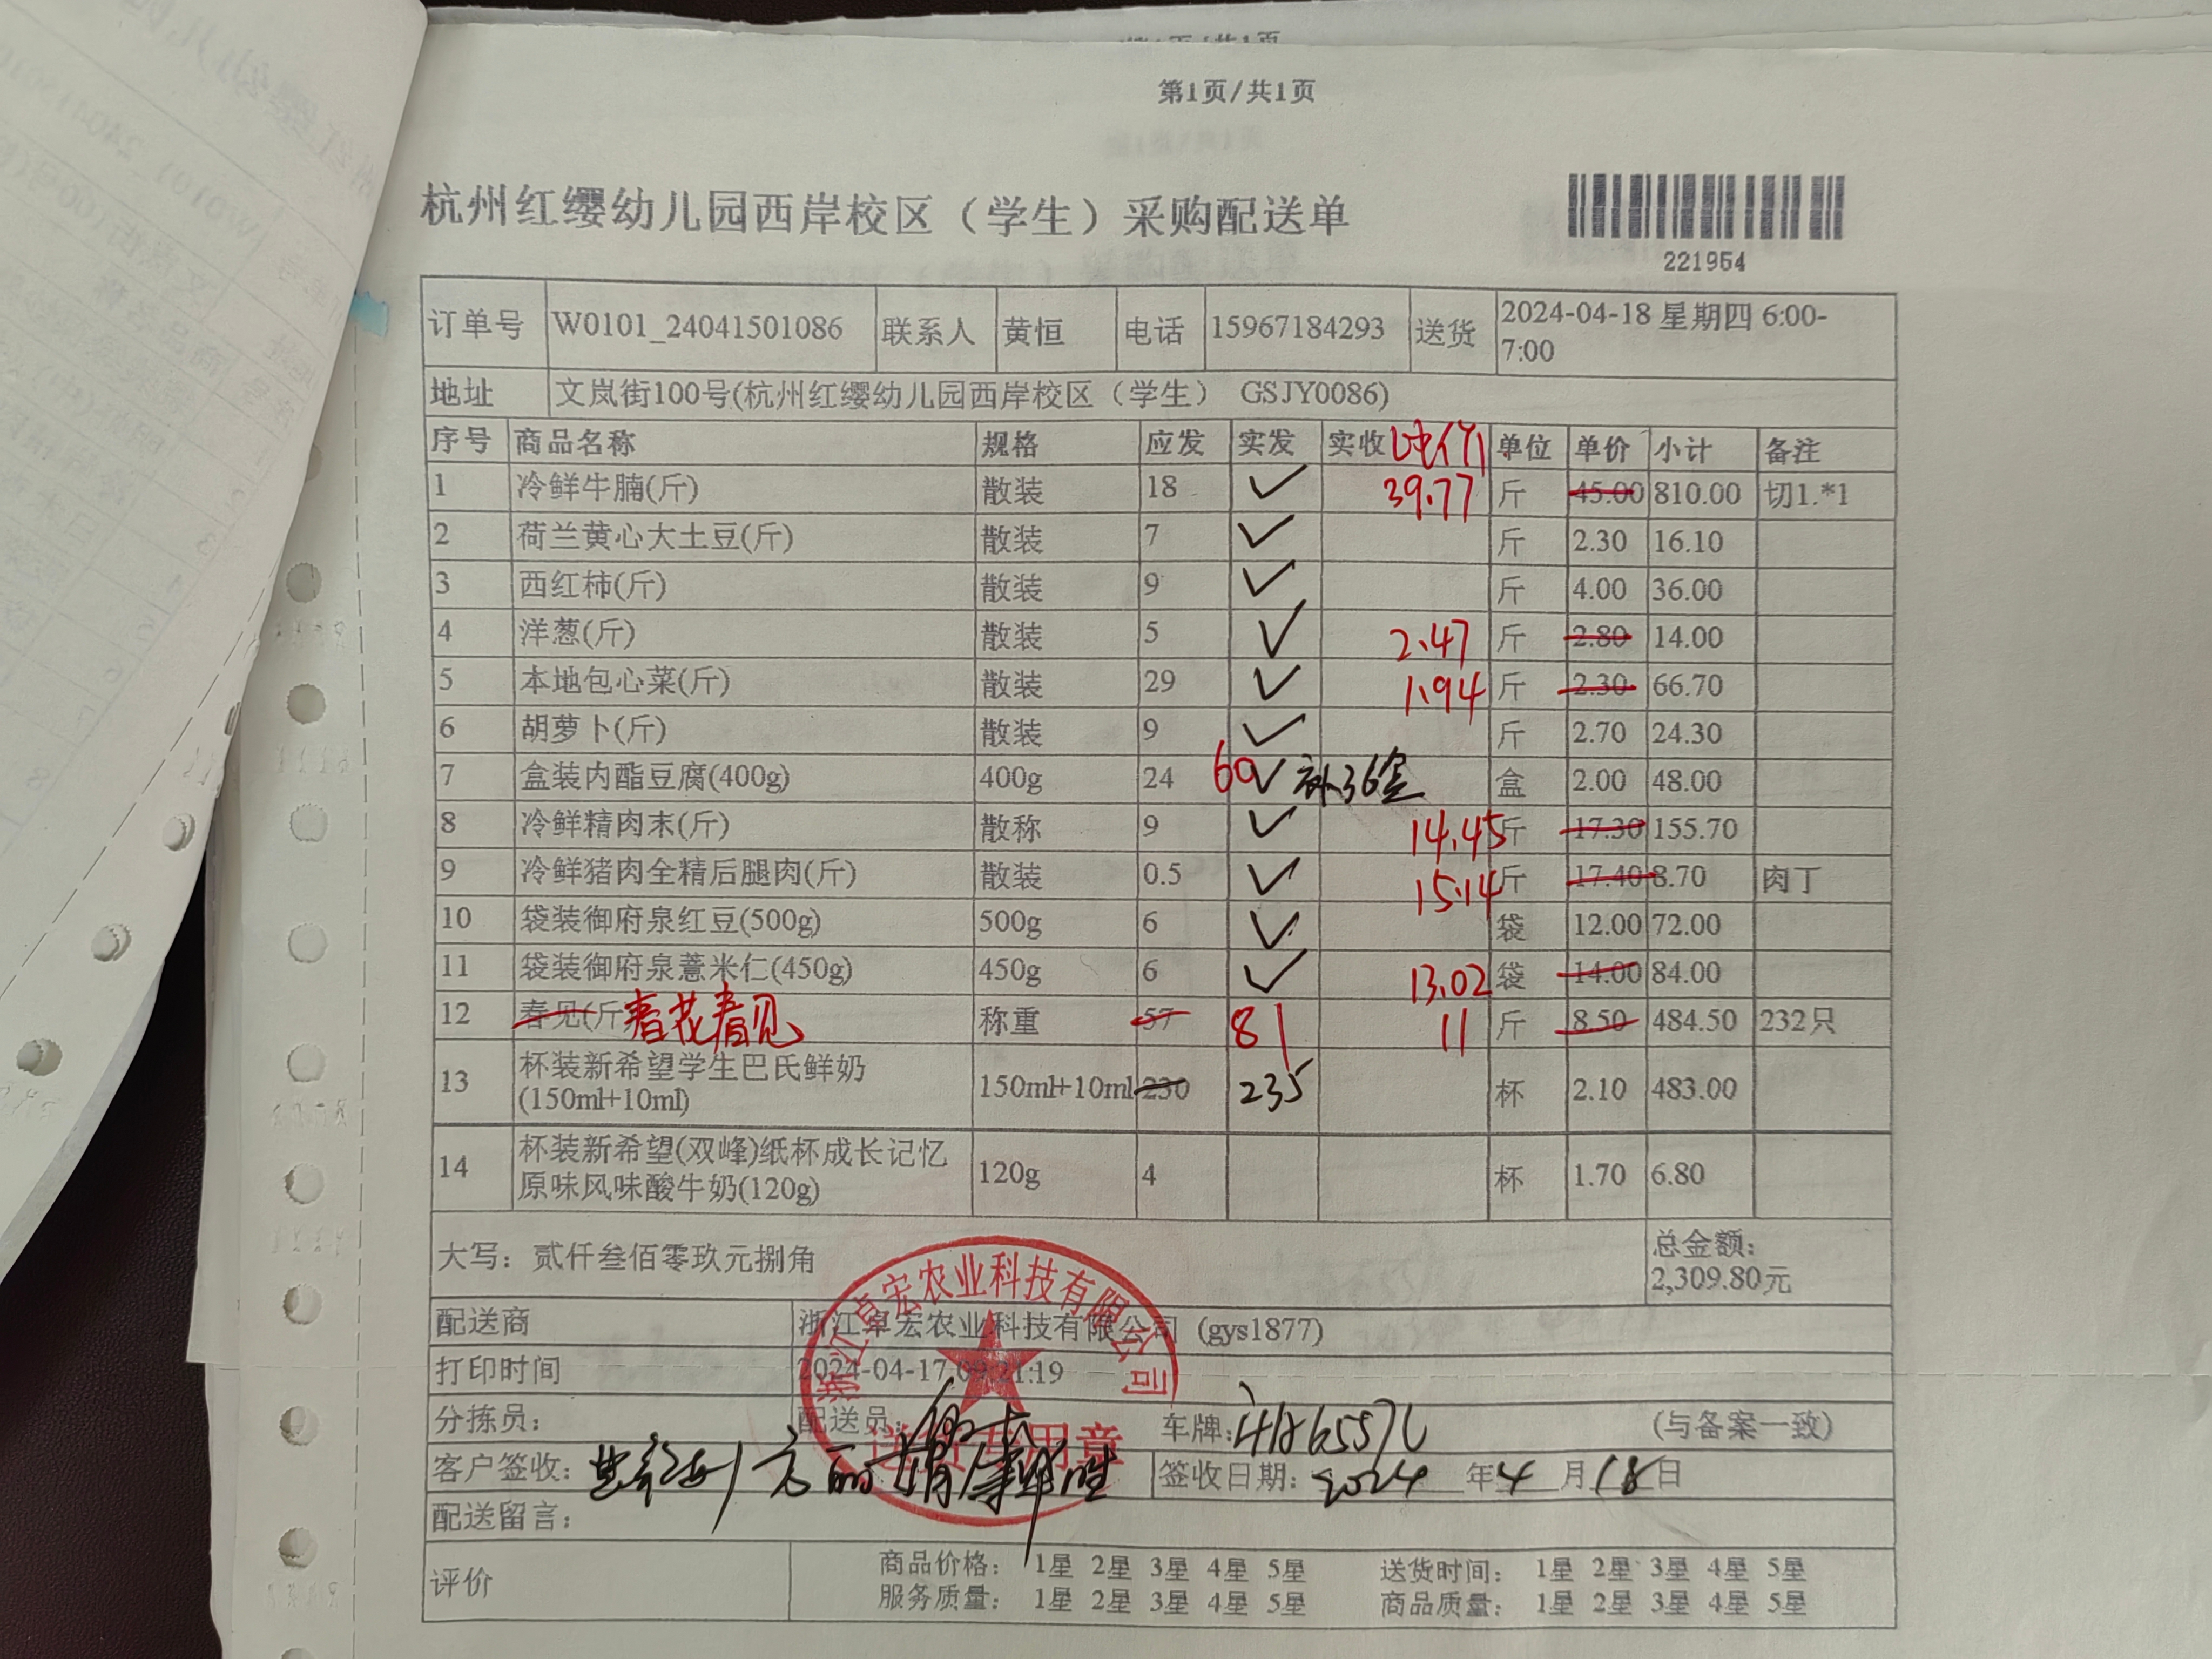 第1页/共1页
杭州红缨幼儿园西岸校区（学生）采购配送单
221954
订单号 W0101_24041501086 联系人 黄恒 电话 15967184293 送货 2024-04-18 星期四 6:00-
7:00
地址 文岚街100号(杭州红缨幼儿园西岸校区（学生） GSJY0086)
序号 商品名称 规格 应发 实发 实收 单位 单价 小计 备注
1 冷鲜牛腩(斤) 散装 18 ✓ 39.77 斤 45.00 810.00 切1.*1
2 荷兰黄心大土豆(斤) 散装 7 ✓ 斤 2.30 16.10
3 西红柿(斤) 散装 9 ✓ 斤 4.00 36.00
4 洋葱(斤) 散装 5 ✓ 2.47 斤 2.80 14.00
5 本地包心菜(斤) 散装 29 ✓ 1.94 斤 2.30 66.70
6 胡萝卜(斤) 散装 9 ✓ 斤 2.70 24.30
7 盒装内酯豆腐(400g) 400g 24 60 ✓ 补36盒 盒 2.00 48.00
8 冷鲜精肉末(斤) 散称 9 ✓ 14.45 斤 17.30 155.70
9 冷鲜猪肉全精后腿肉(斤) 散装 0.5 ✓ 15.14 斤 17.40 8.70 肉丁
10 袋装御府泉红豆(500g) 500g 6 ✓ 袋 12.00 72.00
11 袋装御府泉薏米仁(450g) 450g 6 ✓ 13.02 袋 14.00 84.00
12 春见(斤 春花春见 称重 57 81 11 斤 8.50 484.50 232只
13 杯装新希望学生巴氏鲜奶 150ml+10ml 230 235 杯 2.10 483.00
(150ml+10ml)
14 杯装新希望(双峰)纸杯成长记忆 120g 4 杯 1.70 6.80
原味风味酸牛奶(120g)
大写：贰仟叁佰零玖元捌角 总金额：
2,309.80元
配送商 浙江卓宏农业科技有限公司 (gys1877)
浙江卓宏农业科技有限公司
打印时间 2024-04-17 09:21:19
分拣员： 配送员： 车牌： (与备案一致)
送货专用章
客户签收： 签收日期：2024 年 4 月 18 日
配送留言：
评价 商品价格： 1星 2星 3星 4星 5星 送货时间： 1星 2星 3星 4星 5星
服务质量： 1星 2星 3星 4星 5星 商品质量： 1星 2星 3星 4星 5星